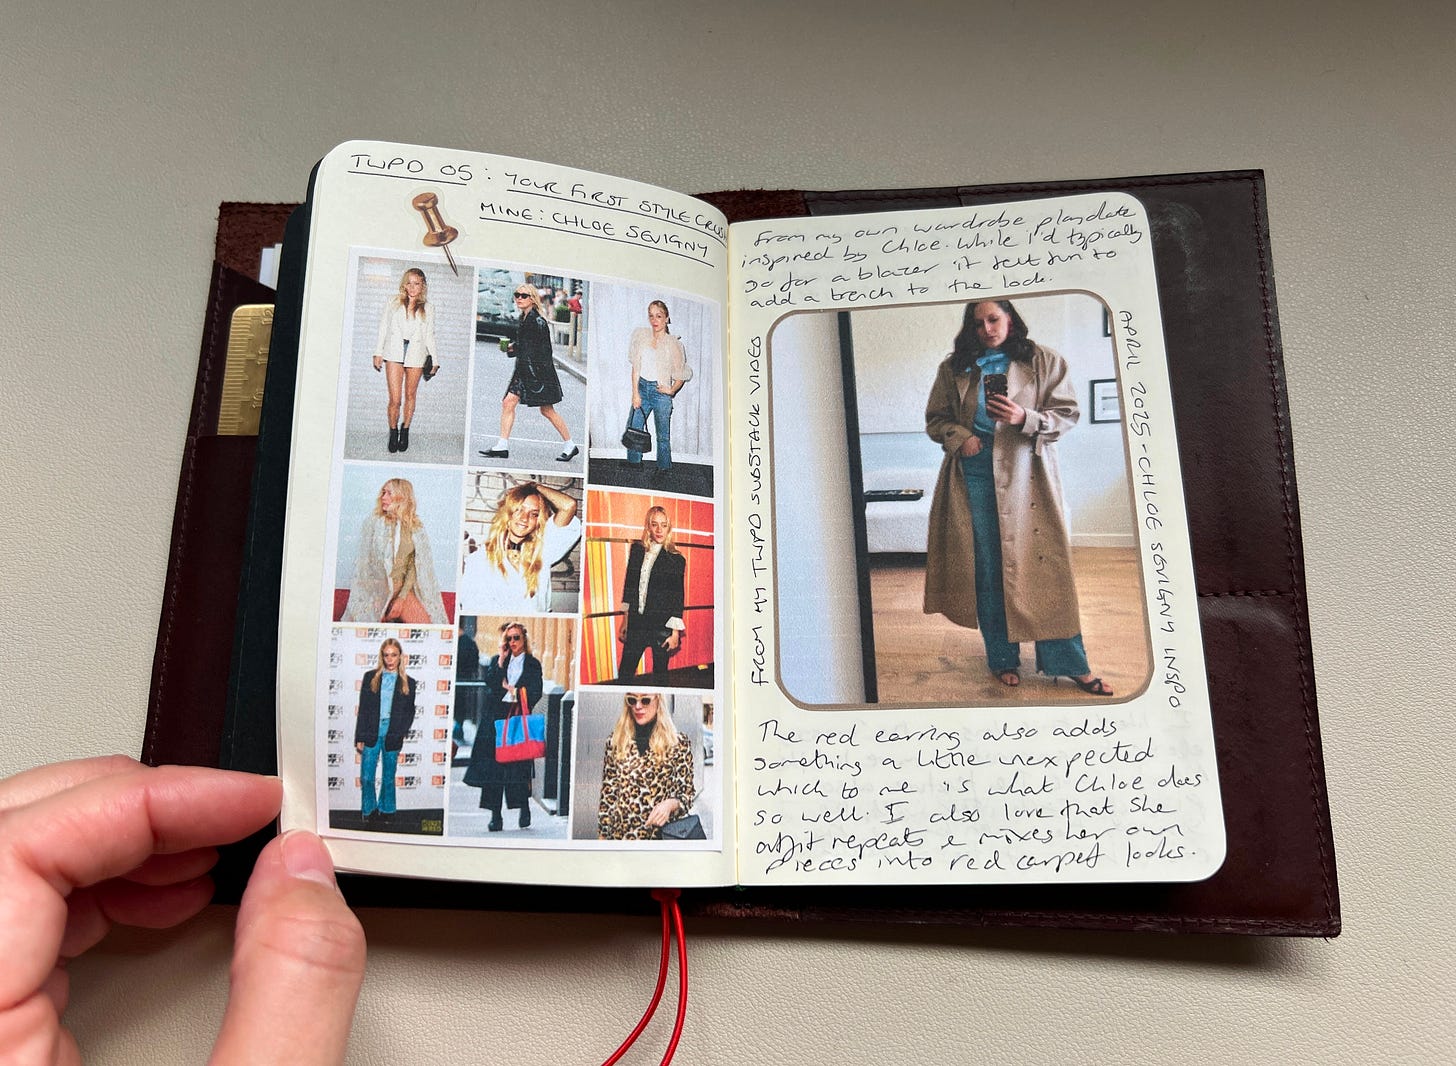 TWPD 05: YOUR FIRST STYLE CRUSH
MINE: CHLOE SEVIGNY
From my own wardrobe playdate
inspired by Chloe. While I'd typically
go for a blazer it felt fun to
add a trench to the look.
FROM MY TWPD SUBSTACK VIDEO
APRIL 2025 - CHLOE SEVIGNY INSPO
The red earring also adds
something a little unexpected
which to me is what Chloe does
so well. I also love that she
outfit repeats & mixes her own
pieces into red carpet looks.